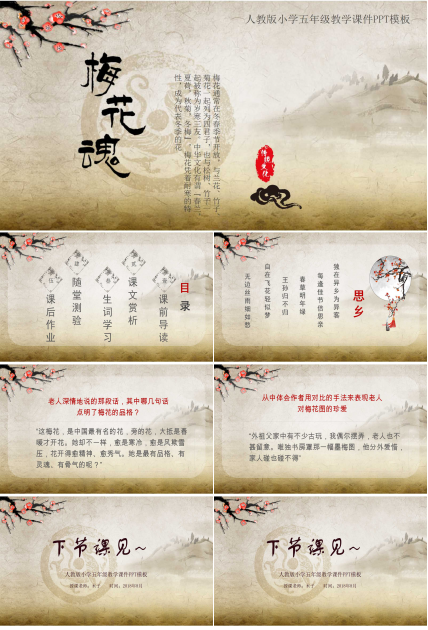 人教版小学五年级教学课件PPT模板
梅花魂
梅花通常在冬春季节开放，与兰花、竹子、
菊花一起列为四君子，也与松树、竹子一
起被称为岁寒三友。中华文化有谓“春兰，
夏荷，秋菊，冬梅”，梅花凭着耐寒的特
性，成为代表冬季的花
传统文化
目录
壹
课前导读
叁
生词学习
贰
课文赏析
肆
随堂测验
伍
课后作业
思乡
独在异乡为异客
每逢佳节倍思亲
春草明年绿
王孙归不归
自在飞花轻似梦
无边丝雨细如愁
老人深情地说的那段话，其中哪几句话
点明了梅花的品格？
“这梅花，是中国最有名的花，旁的花，大抵是春
暖才开花。她却不一样，愈是寒冷，愈是风欺雪
压，花开得愈精神、愈秀气。她是最有品格、有
灵魂、有骨气的呢？”
从中体会作者用对比的手法来表现老人
对梅花图的珍爱
“外祖父家中有不少古玩，我偶尔摆弄，老人也不
甚留意。唯独书房里那一幅墨梅图，他分外爱惜，
家人碰也碰不得”
下节课见～
人教版小学五年级教学课件PPT模板
下节课见～
人教版小学五年级教学课件PPT模板